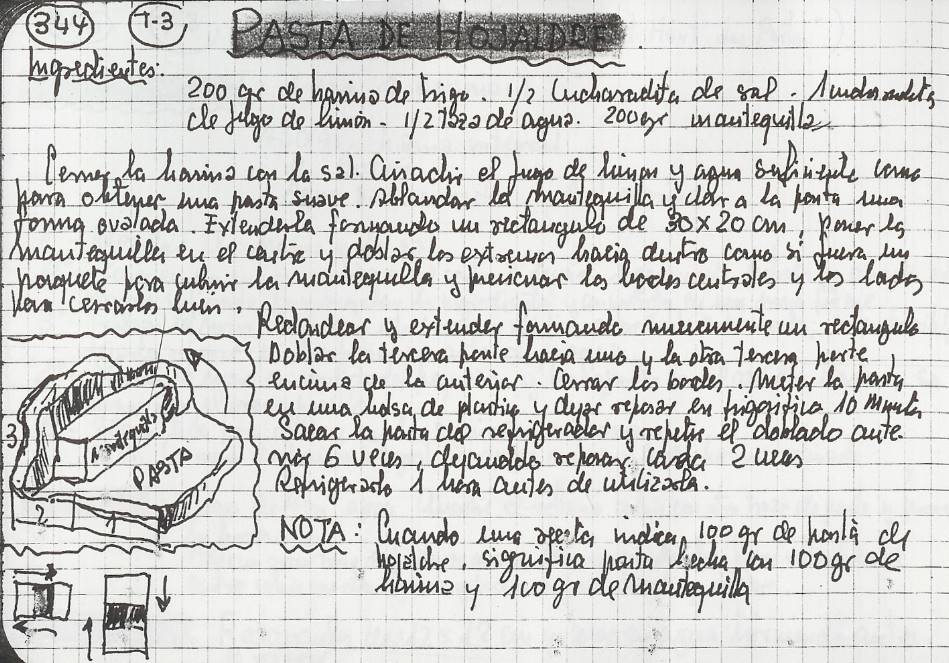 344 T-3 PASTA DE HOJALDRE
Ingredientes:
200 gr de harina de trigo. 1/2 Cucharadita de sal. 1 cucharadita
de jugo de limón - 1/2 taza de agua. 200 gr mantequilla
Cerner la harina con la sal. Añadir el jugo de limon y agua suficiente como
para obtener una pasta suave. Ablandar la mantequilla y dar a la pasta una
forma ovalada. Extenderla formando un rectangulo de 30x20 cm, poner la
mantequilla en el centro y doblar los extremos hacia dentro como si fuera un
paquete para cubrir la mantequilla y presionar los bordes centrales y los lados
para cerrarlos bien.
Redondear y extender formando nuevamente un rectangulo
Doblar la tercera parte hacia uno y la otra tercera parte
encima de la anterior. Cerrar los bordes. Meter la pasta
en una bolsa de plastico y dejar reposar en frigorifico 10 minutos
Sacar la pasta del refrigerador y repetir el doblado ante-
rior 6 veces, dejandola reposar cada 2 veces
Refrigerarlo 1 hora antes de utilizarla.
mantequilla
PASTA
3
2
1
NOTA: Cuando una receta indica 100 gr de pasta de
hojaldre, significa pasta hecha con 100 gr de
harina y 100 gr de mantequilla